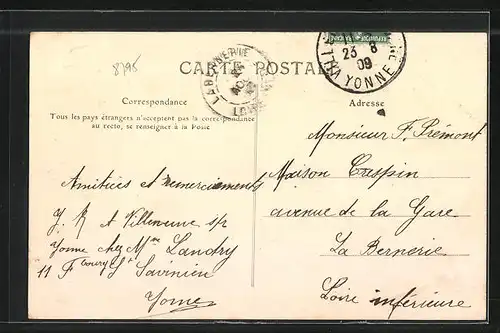 8795
CARTE POSTALE
LA BERNERIE
LOIRE
23 8
09
YONNE
Correspondance
Adresse
Tous les pays étrangers n'acceptent pas la correspondance
au recto, se renseigner à la Poste
Monsieur F. Prémont
Maison Crespin
avenue de la Gare
La Bernerie
Loire inférieure
Amitiées et remerciements
et Villeneuve s/y
Yonne chez Mme Landry
11 Fbourg St Savinien
Yonne